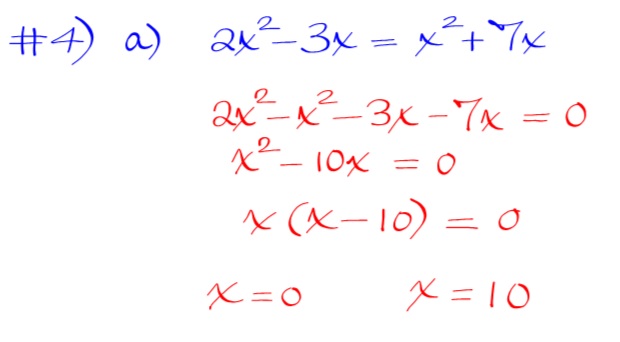 #4) a) 2x² - 3x = x² + 7x
2x² - x² - 3x - 7x = 0
x² - 10x = 0
x(x - 10) = 0
x = 0 x = 10